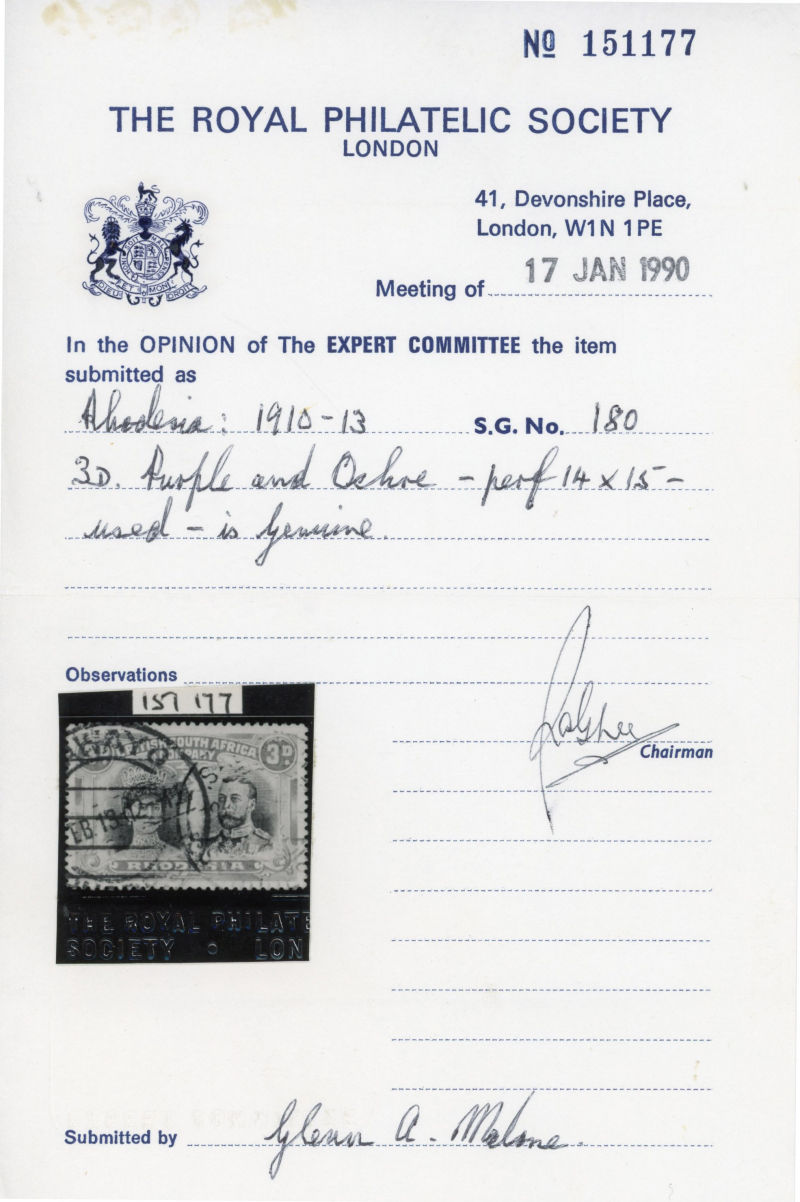 Nº 151177
THE ROYAL PHILATELIC SOCIETY
LONDON
41, Devonshire Place,
London, W1N 1PE
DIEU ET MON DROIT
Meeting of 17 JAN 1990
In the OPINION of The EXPERT COMMITTEE the item
submitted as
Rhodesia: 1910-13 S.G. No. 180
3D. Purple and Ochre - perf 14 x 15 -
used - is genuine.
Observations
151 177
BRITISH SOUTH AFRICA
COMPANY
3D
EB 13
RHODESIA
THE ROYAL PHILATE
SOCIETY · LON
Chairman
Submitted by Glenn A. Malone.